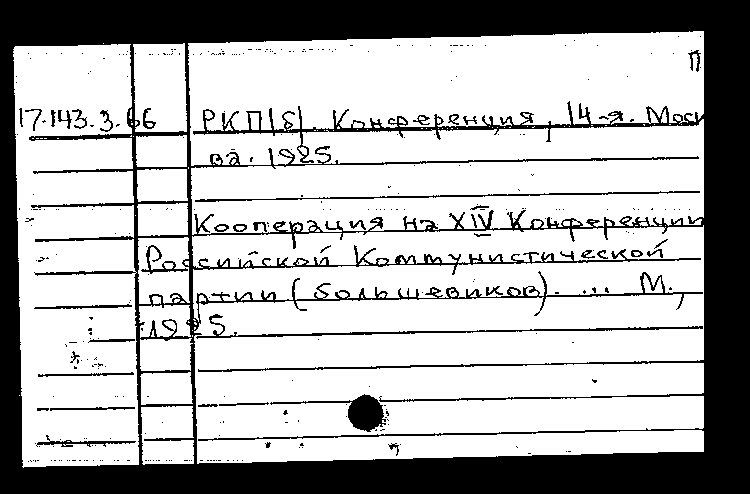 П
17.143.3.66 РКП(б). Конференция, 14-я. Моск
ва. 1925.
Кооперация на XIV Конференции
Российской Коммунистической
партии (большевиков). ... М.,
1925.